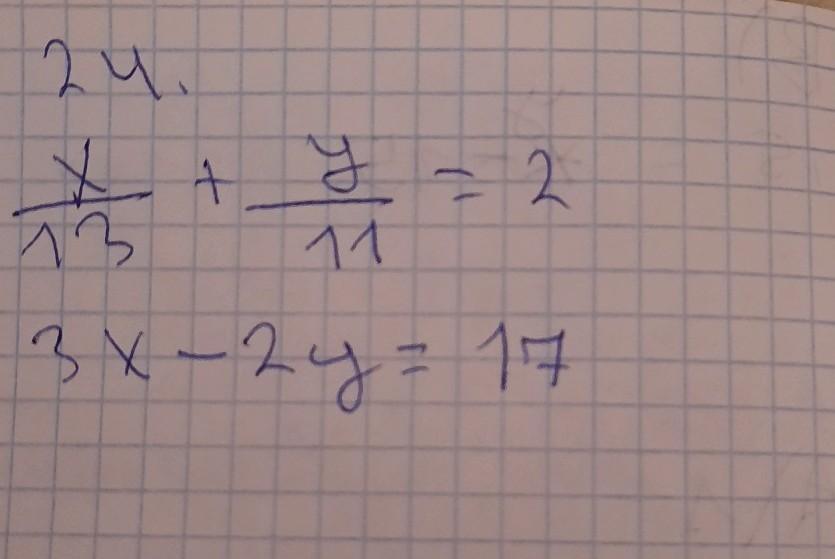 24.
x/13 + y/11 = 2
3x - 2y = 17